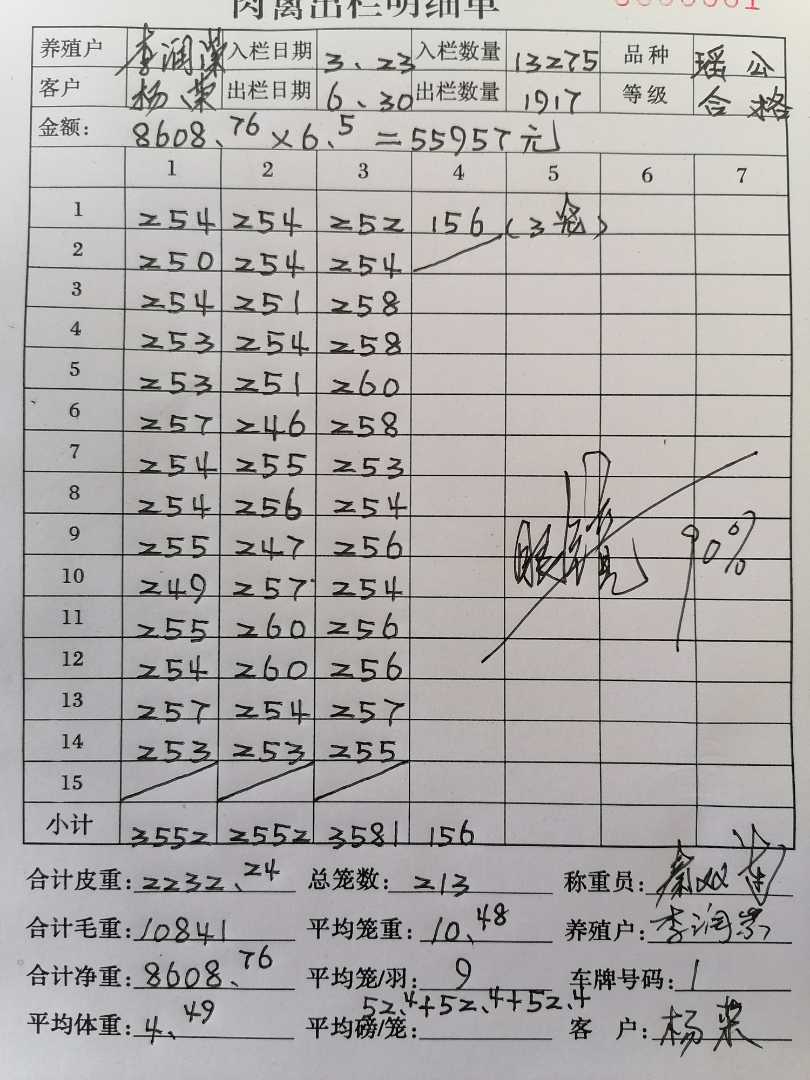 肉禽出栏明细单
养殖户 李润深 入栏日期 3、23 入栏数量 13275 品种 瑶公
客户 杨荣 出栏日期 6、30 出栏数量 1917 等级 合格
金额: 8608、76×6、5=55957元
1 2 3 4 5 6 7
1 254 254 252 156 (3笼)
2 250 254 254
3 254 251 258
4 253 254 258
5 253 251 260
6 257 246 258
7 254 255 253
8 254 256 254
9 255 247 256
10 249 257 254
11 255 260 256
12 254 260 256
13 257 254 257
14 253 253 255
90%
15
小计 3552 2552 3581 156
合计皮重: 2232、24 总笼数: 213 称重员:
合计毛重: 10841 平均笼重: 10、48 养殖户: 李润
合计净重: 8608、76 平均笼/羽: 9 车牌号码: 1
平均体重: 4、49 平均磅/笼: 52、4+52、4+52、4 客户: 杨荣